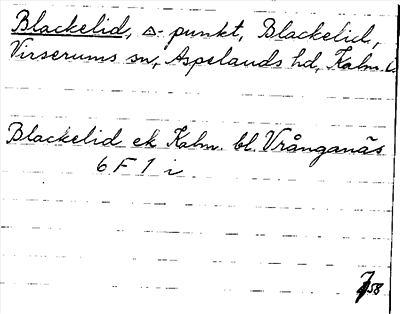 Blackelid, △-punkt, Blackelid,
Virserums sn, Aspelands hd, Kalm. l.
Blackelid ek Kalm. bl. Vrånganäs
6 F 1 i
58